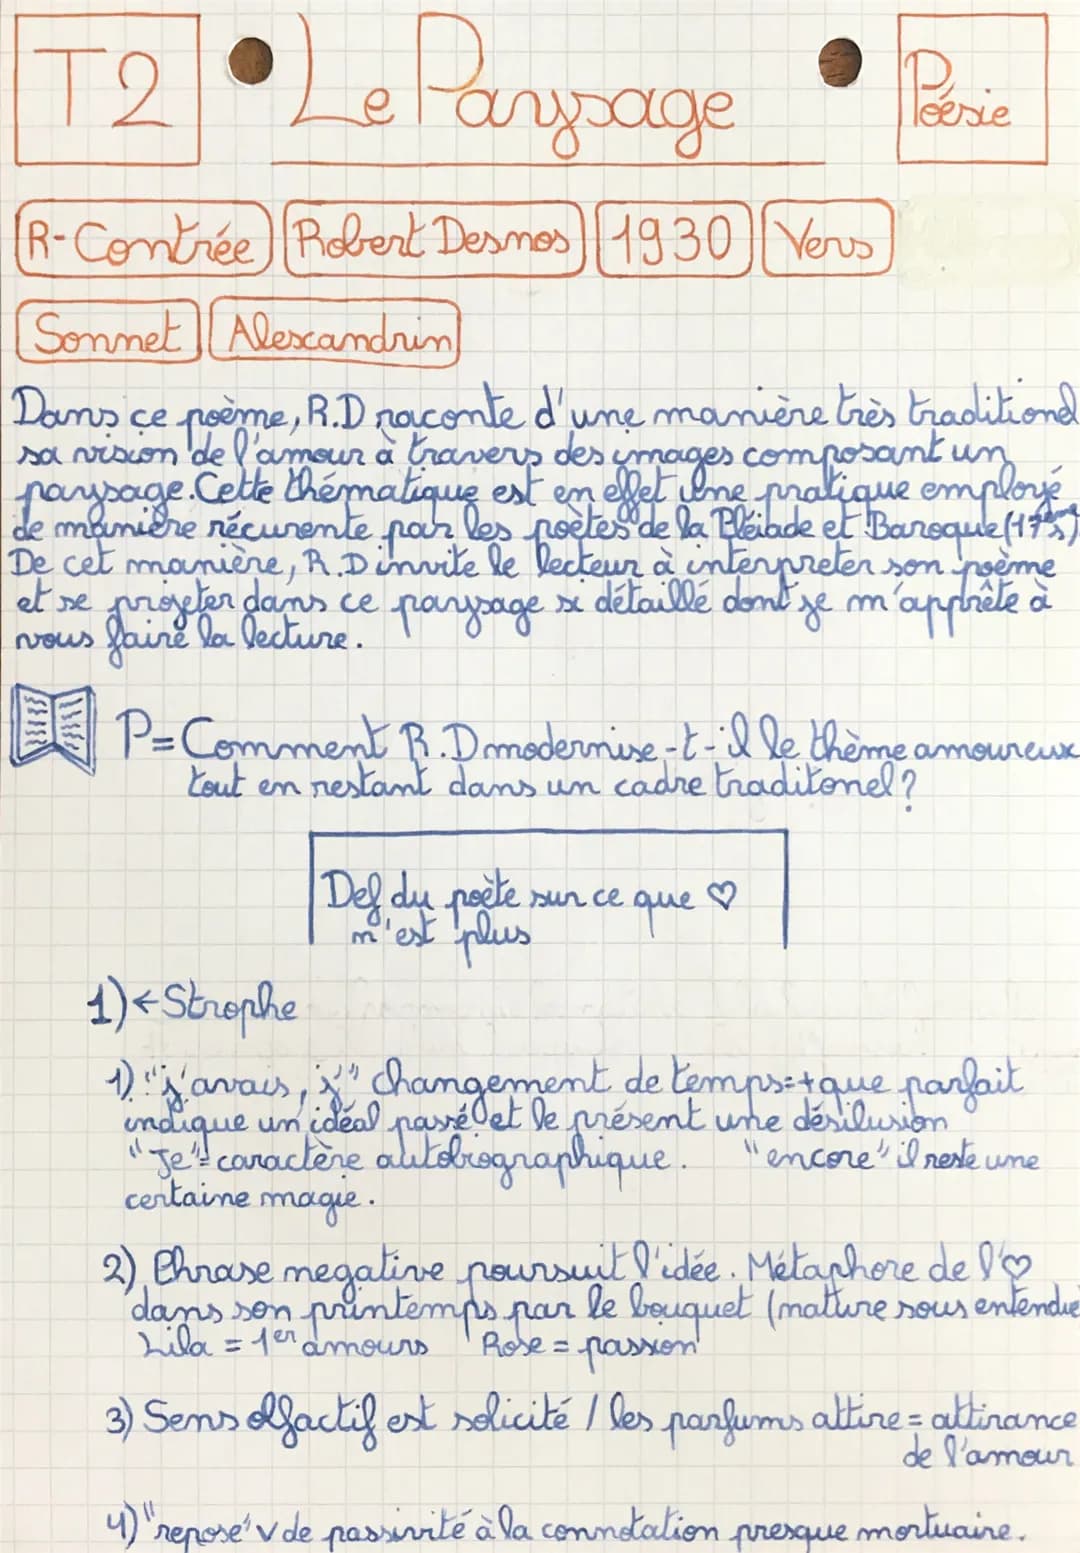 T2
Le Paysage
Poésie
R-Contrée
Robert Desnos
1930
Vers
Sonnet
Alexcandrin
Dans ce poème, R.D raconte d'une manière très traditionel
sa vision de l'amour à travers des images composant un
paysage. Cette thématique est en effet une pratique employé
de manière récurente par les poètes de la Pléiade et Baroque (17ème s)
De cet manière, R.D invite le lecteur à interpreter son poème
et se projeter dans ce paysage si détaillé dont je m'apprête à
vous faire la lecture.
P= Comment R.D modernise-t-il le thème amoureux
tout en restant dans un cadre traditonel?
Def du poète sur ce que ♡
n'est plus
1) ← Strophe
1) "j'avais, j'" changement de temps = + que parfait
indique un idéal passé et le présent une désilusion
"Je" = caractère autobiographique. "encore" il reste une
certaine magie.
2) Phrase negative poursuit l'idée. Métaphore de l'♡
dans son printemps par le bouquet (matûre sous entendue
Lila = 1er amours Rose = passion
3) Sens olfactif est solicité / les parfums attire = attirance
de l'amour
4) "repose" v de passivité à la connotation presque mortuaire.